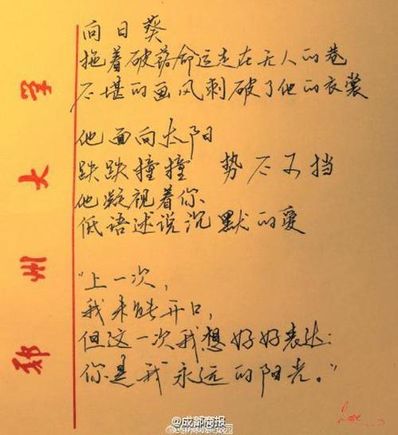 向日葵
拖着破落命运走在无人的巷
不堪的画风刺破了他的衣裳
他面向太阳
跌跌撞撞 势不可挡
他凝视着你
低语述说沉默的爱
"上一次,
我未能开口,
但这一次我想好好表达:
你是我永远的阳光。"
郑州大学
@成都商报